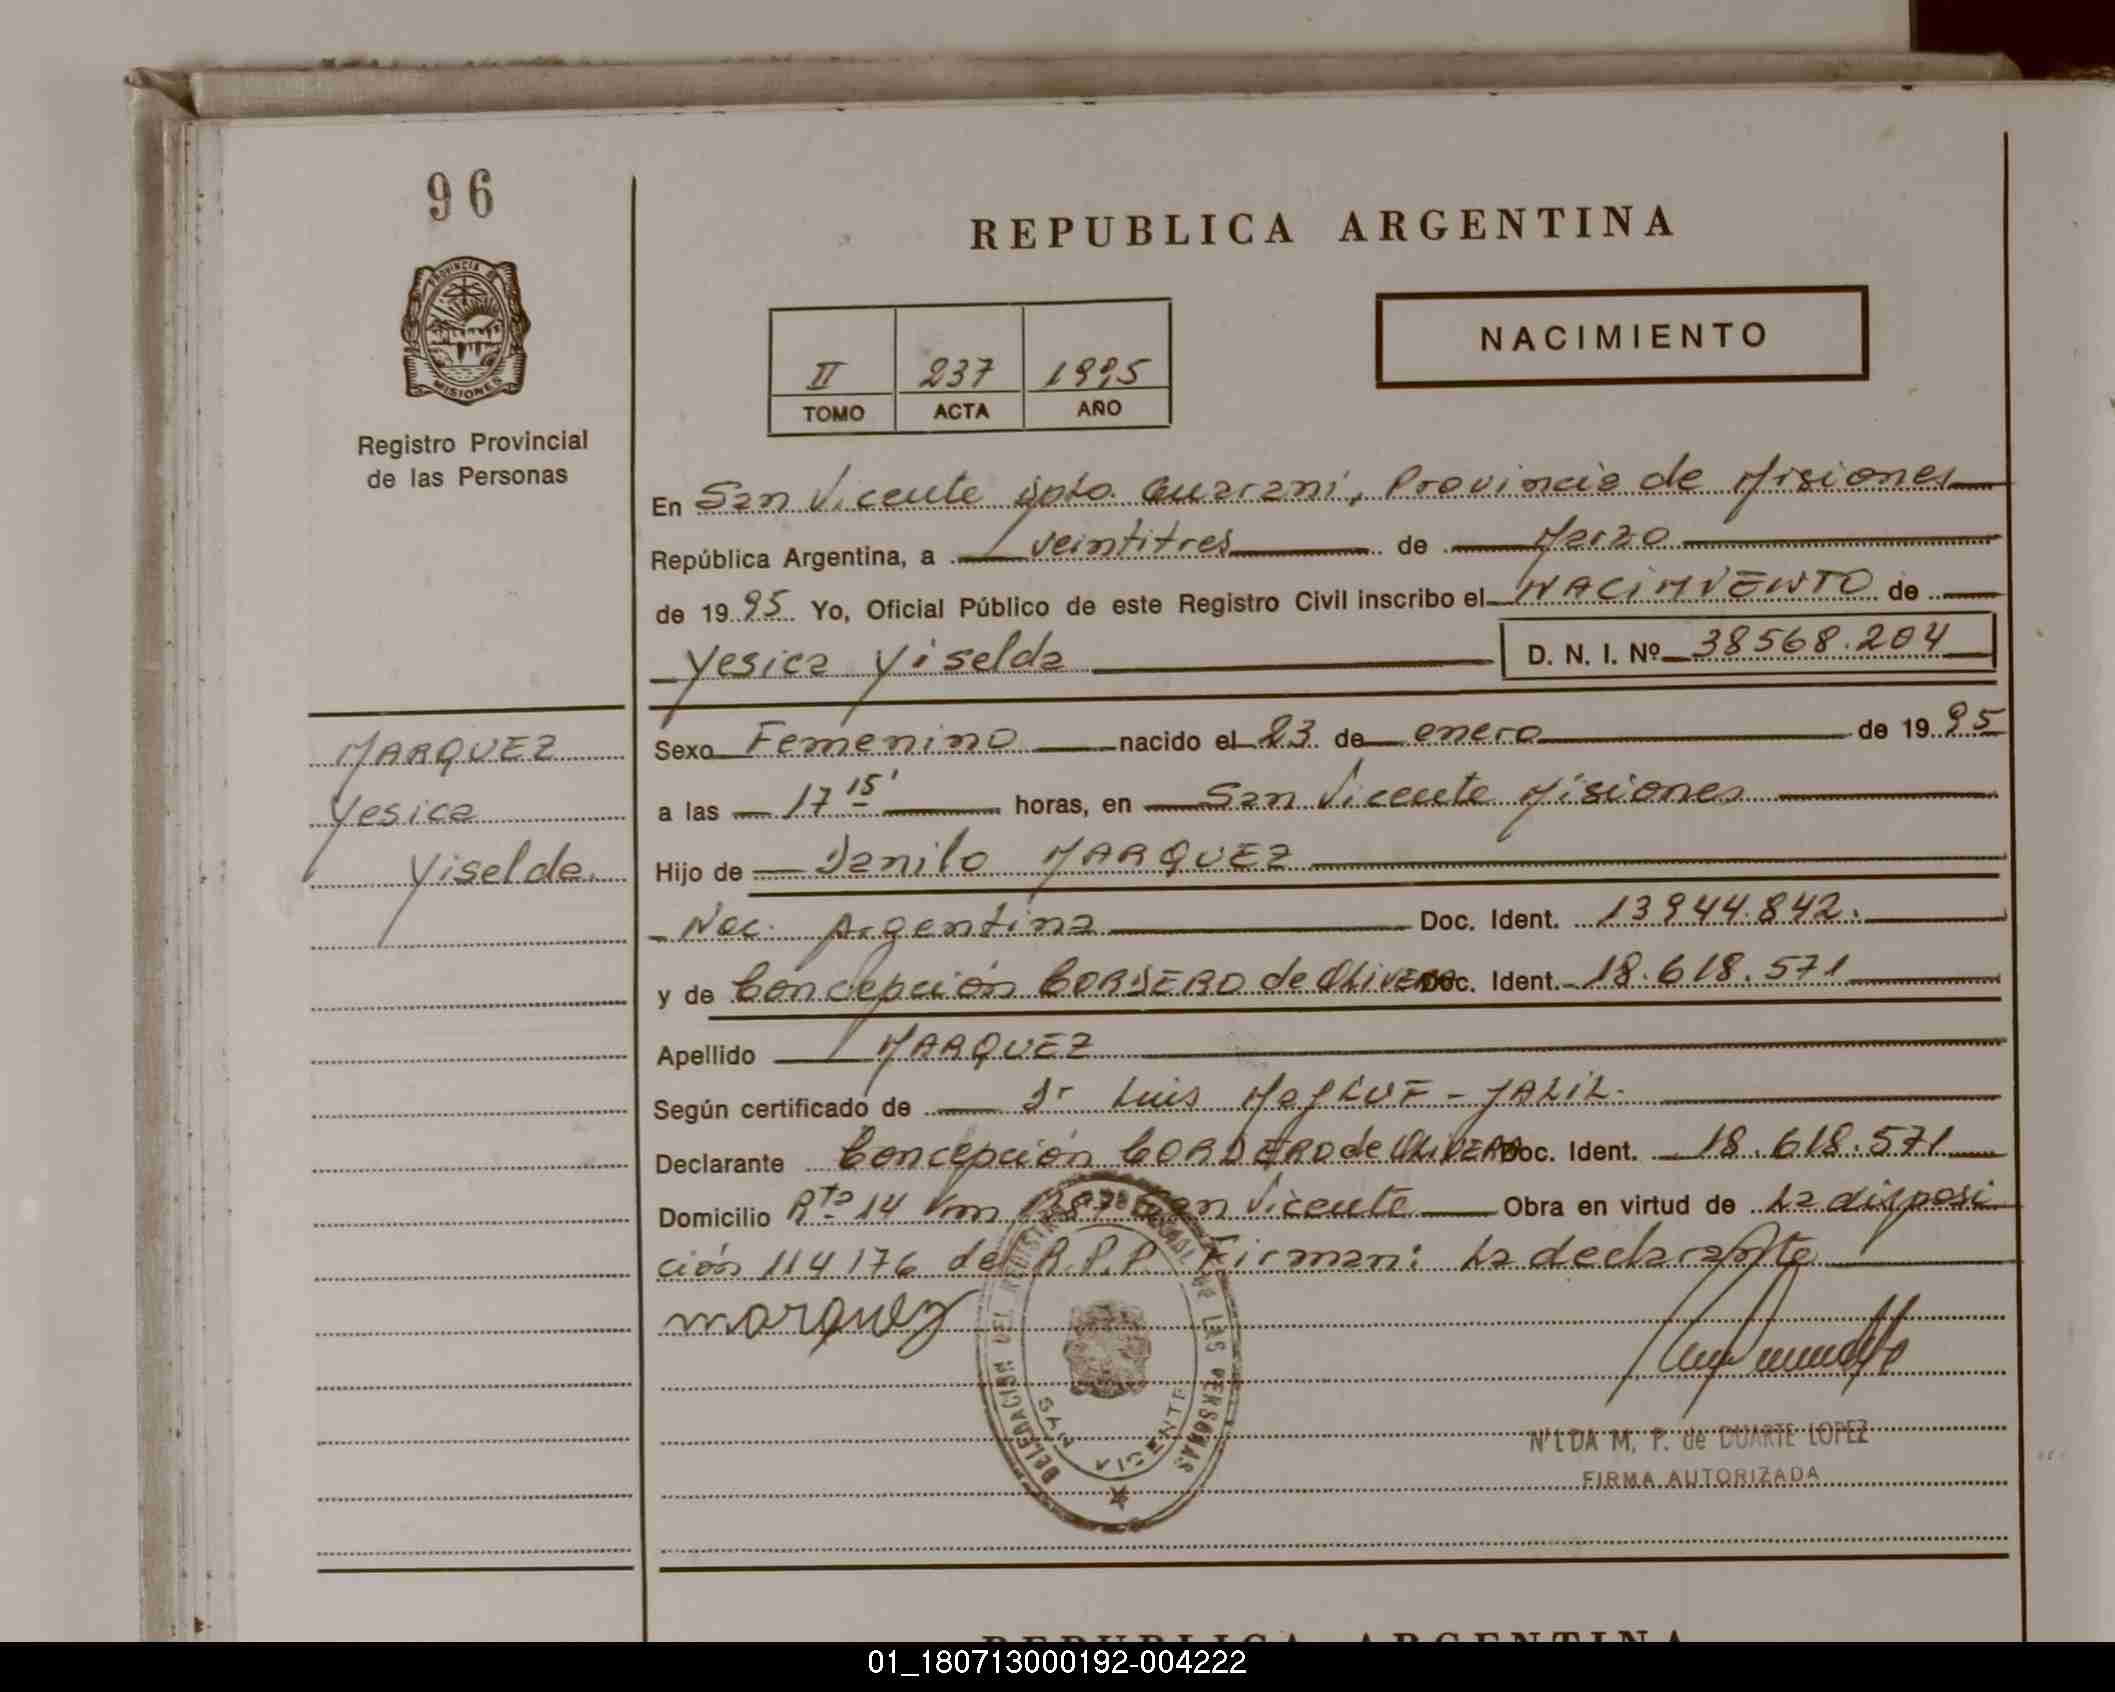 96
PROVINCIA DE
MISIONES
Registro Provincial
de las Personas
REPUBLICA ARGENTINA
NACIMIENTO
II 237 1995
TOMO ACTA AÑO
En San Vicente Dpto. Guarani, Provincia de Misiones
República Argentina, a veintitres de Marzo
de 1995 Yo, Oficial Público de este Registro Civil inscribo el NACIMIENTO de
Yesica Yiselda D. N. I. Nº 38568.204
MARQUEZ
Yesica
Yiselda.
Sexo Femenino nacido el 23 de enero de 1995
a las 17 15' horas, en San Vicente Misiones
Hijo de Danilo MARQUEZ
Nac. Argentina Doc. Ident. 13944.842.
y de Concepción CORDERO de OLIVERA Doc. Ident. 18.618.571
Apellido MARQUEZ
Según certificado de Dr Luis JALIL.
Declarante Concepción CORDERO de OLIVERA Doc. Ident. 18.618.571
Domicilio Rta 14 Km 1387 San Vicente Obra en virtud de La disposi
ción 114176 del R.P.P. Firman: La declarante
marquez
DELEGACION DEL REGISTRO PROVINCIAL DE LAS PERSONAS
SAN VICENTE
NILDA M. P. de DUARTE LOPEZ
FIRMA AUTORIZADA
REPUBLICA ARGENTINA
01_180713000192-004222